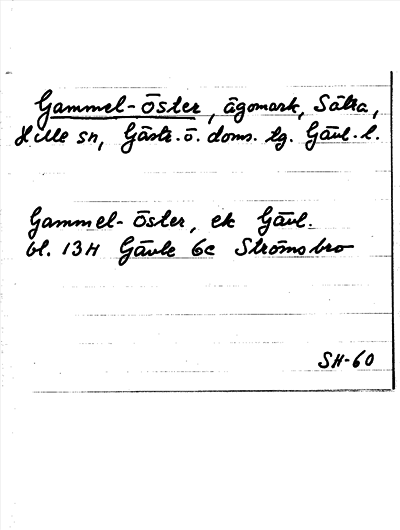 Gammel-Öster, ägomark, Sätra,
Hille sn, Gästr. ö. doms. tg. Gävl. l.
Gammel-Öster, ek Gävl.
bl. 13H Gävle 6c Strömsbro
SH-60